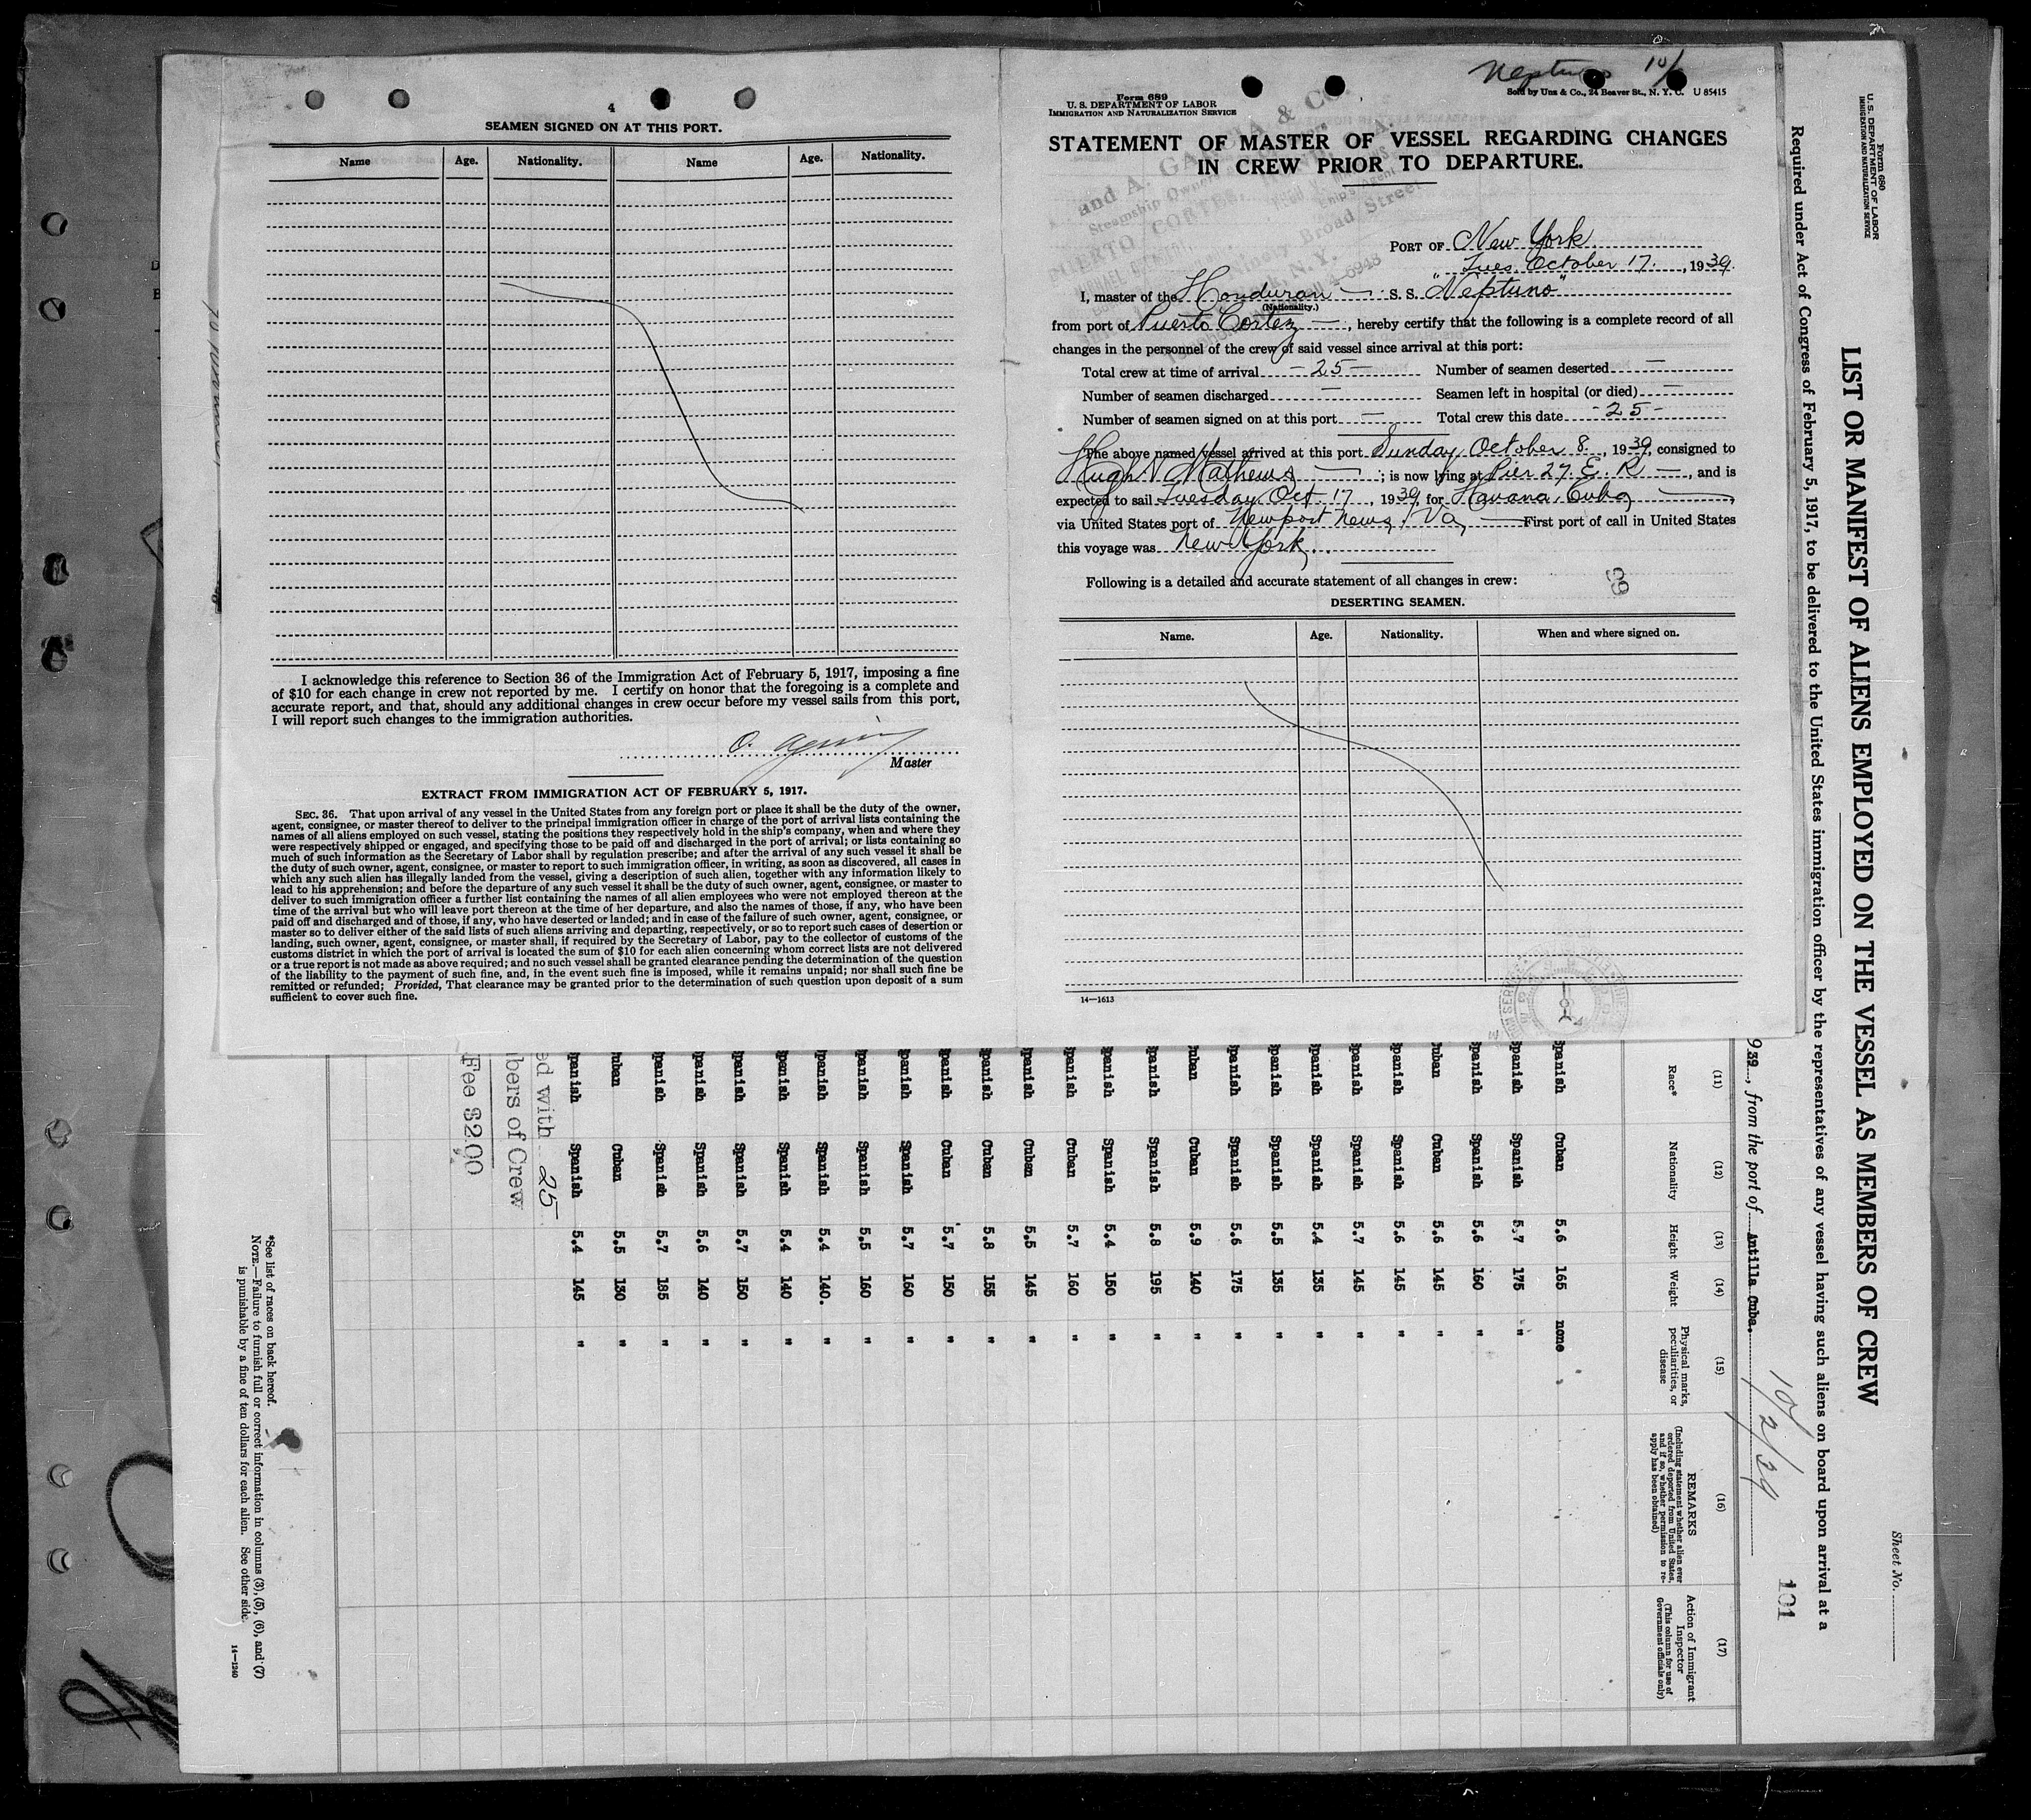 4
SEAMEN SIGNED ON AT THIS PORT.
Name Age. Nationality. Name Age. Nationality.
I acknowledge this reference to Section 36 of the Immigration Act of February 5, 1917, imposing a fine
of $10 for each change in crew not reported by me. I certify on honor that the foregoing is a complete and
accurate report, and that, should any additional changes in crew occur before my vessel sails from this port,
I will report such changes to the immigration authorities.
O.
Master
EXTRACT FROM IMMIGRATION ACT OF FEBRUARY 5, 1917.
SEC. 36. That upon arrival of any vessel in the United States from any foreign port or place it shall be the duty of the owner,
agent, consignee, or master thereof to deliver to the principal immigration officer in charge of the port of arrival lists containing the
names of all aliens employed on such vessel, stating the positions they respectively hold in the ship's company, when and where they
were respectively shipped or engaged, and specifying those to be paid off and discharged in the port of arrival; or lists containing so
much of such information as the Secretary of Labor shall by regulation prescribe; and after the arrival of any such vessel it shall be
the duty of such owner, agent, consignee, or master to report to such immigration officer, in writing, as soon as discovered, all cases in
which any such alien has illegally landed from the vessel, giving a description of such alien, together with any information likely to
lead to his apprehension; and before the departure of any such vessel it shall be the duty of such owner, agent, consignee, or master to
deliver to such immigration officer a further list containing the names of all alien employees who were not employed thereon at the
time of the arrival but who will leave port thereon at the time of her departure, and also the names of those, if any, who have been
paid off and discharged and of those, if any, who have deserted or landed; and in case of the failure of such owner, agent, consignee, or
master so to deliver either of the said lists of such aliens arriving and departing, respectively, or so to report such cases of desertion or
landing, such owner, agent, consignee, or master shall, if required by the Secretary of Labor, pay to the collector of customs of the
customs district in which the port of arrival is located the sum of $10 for each alien concerning whom correct lists are not delivered
or a true report is not made as above required; and no such vessel shall be granted clearance pending the determination of the question
of the liability to the payment of such fine, and, in the event such fine is imposed, while it remains unpaid; nor shall such fine be
remitted or refunded; Provided, That clearance may be granted prior to the determination of such question upon deposit of a sum
sufficient to cover such fine.
Neptuno 10/
Sold by Unz & Co., 24 Beaver St., N. Y. C. U 85415
Form 689
U. S. DEPARTMENT OF LABOR
IMMIGRATION AND NATURALIZATION SERVICE
STATEMENT OF MASTER OF VESSEL REGARDING CHANGES
IN CREW PRIOR TO DEPARTURE.
and A. GARCIA & CO.
Steamship Owners
PUERTO CORTES
Ninety Broad Street
N. Y.
PORT OF New York
Tues October 17, 1939.
I, master of the Honduran S. S. "Neptuno"
(Nationality.)
from port of Puerto Cortez —, hereby certify that the following is a complete record of all
changes in the personnel of the crew of said vessel since arrival at this port:
Total crew at time of arrival - 25 - Number of seamen deserted —
Number of seamen discharged — Seamen left in hospital (or died) —
Number of seamen signed on at this port — Total crew this date - 25 -
The above named vessel arrived at this port Sunday, October 8, 1939, consigned to
Hugh V Mathews —; is now lying at Pier 27. E. R —, and is
expected to sail Tuesday Oct. 17, 1939, for Havana, Cuba —,
via United States port of Newport News, Va, — First port of call in United States
this voyage was New York.
Following is a detailed and accurate statement of all changes in crew:
DESERTING SEAMEN.
Name. Age. Nationality. When and where signed on.
14—1613
Form 680
U. S. DEPARTMENT OF LABOR
IMMIGRATION AND NATURALIZATION SERVICE
Sheet No.
LIST OR MANIFEST OF ALIENS EMPLOYED ON THE VESSEL AS MEMBERS OF CREW
Required under Act of Congress of February 5, 1917, to be delivered to the United States immigration officer by the representatives of any vessel having such aliens on board upon arrival at a
101
10/2/39
939, from the port of Antilla Cuba.
(11) (12) (13) (14) (15) (16) (17)
Race* Nationality Height Weight Physical marks, peculiarities, or disease REMARKS (Including statement whether alien ever ordered deported from United States, and if so, whether permission to re-apply has been obtained) Action of Immigrant Inspector (This column for use of Government officials only)
panish Cuban 5.6 165 none
panish Spanish 5.7 175 "
panish Spanish 5.6 160 "
uban Cuban 5.6 145 "
panish Spanish 5.6 145 "
panish Spanish 5.7 145 "
panish Spanish 5.4 135 "
panish Spanish 5.5 135 "
panish Spanish 5.6 175 "
uban Cuban 5.9 140 "
panish Spanish 5.8 195 "
panish Spanish 5.4 150 "
panish Cuban 5.7 160 "
panish Cuban 5.5 145 "
panish Cuban 5.8 155 "
panish Cuban 5.7 150 "
panish Spanish 5.7 160 "
panish Spanish 5.5 160 "
panish Spanish 5.4 140. "
panish Spanish 5.4 140 "
panish Spanish 5.7 150 "
panish Spanish 5.6 140 "
panish Spanish 5.7 185 "
uban Cuban 5.5 130 "
panish Spanish 5.4 145 "
ed with 25
bers of Crew
Fee $2.00
*See list of races on back hereof.
NOTE.—Failure to furnish full or correct information in columns (3), (5), (6), and (7)
is punishable by a fine of ten dollars for each alien. See other side.
14—1240